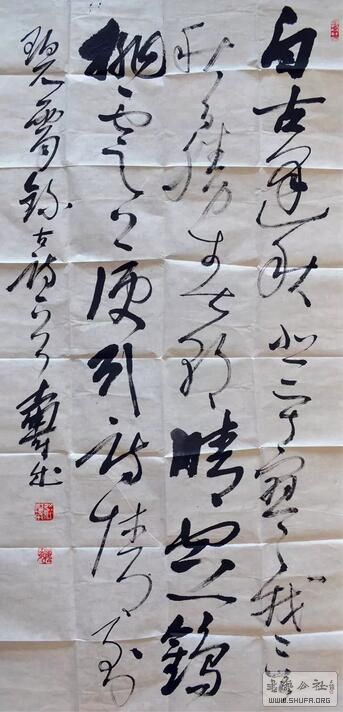 自古逢秋悲寂寥我言
秋日勝春朝晴空一鶴
排雲上便引詩情到
碧霄錄古詩一首
书法公社
WWW.SHUFA.ORG